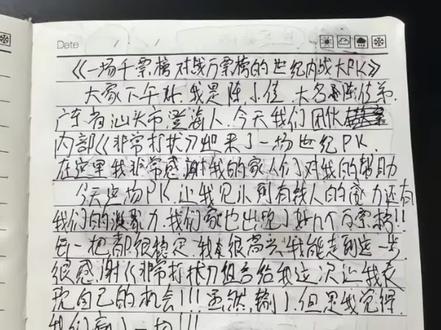 Date / /
《一场千票榜对战万票榜的世纪内战大PK》
大家下午好,我是陈小佳,大名陈佳弟,
广东省汕头市澄海人,今天我们团体
内部《非常打扰》迎来了一场世纪PK.
在这里我非常感谢我的家人们对我的帮助
今天这场PK,让我见识到有钱人的魔力还有
我们的凝聚力,我们家也出现了好几个万票榜!!
每一把都很稳定,我真很高兴,我能走到这一步
很感谢《非常打扰》组合给我这次让我表
现自己的机会!!!虽然输了,但是我觉得
我们赢了一切!!!